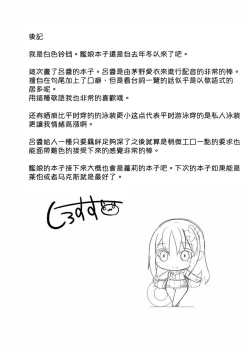 後記
我是白色铃铛。艦娘本子還是自去年冬以來了吧。
這次畫了呂醬的本子。呂醬是由茅野愛衣來進行配音的非常的棒。
擅自在句尾加上了口癖、但是看台詞一覽的話似乎是以敬語式的
居多呢。
用這種敬語我也非常的喜歡哦。
还有晒痕比平时穿的的泳装更小这点代表平时游泳穿的是私人泳装
更讓我情緒高漲啊。
呂醬給人一種只要羈絆足夠深了之後就算是稍微工口一點的要求也
能面帶難色的接受下來的感覺非常的棒。
艦娘的本子接下來大概也會是蘿莉的本子吧。下次的本子如果能是
萊伯或者马克斯就是最好了。